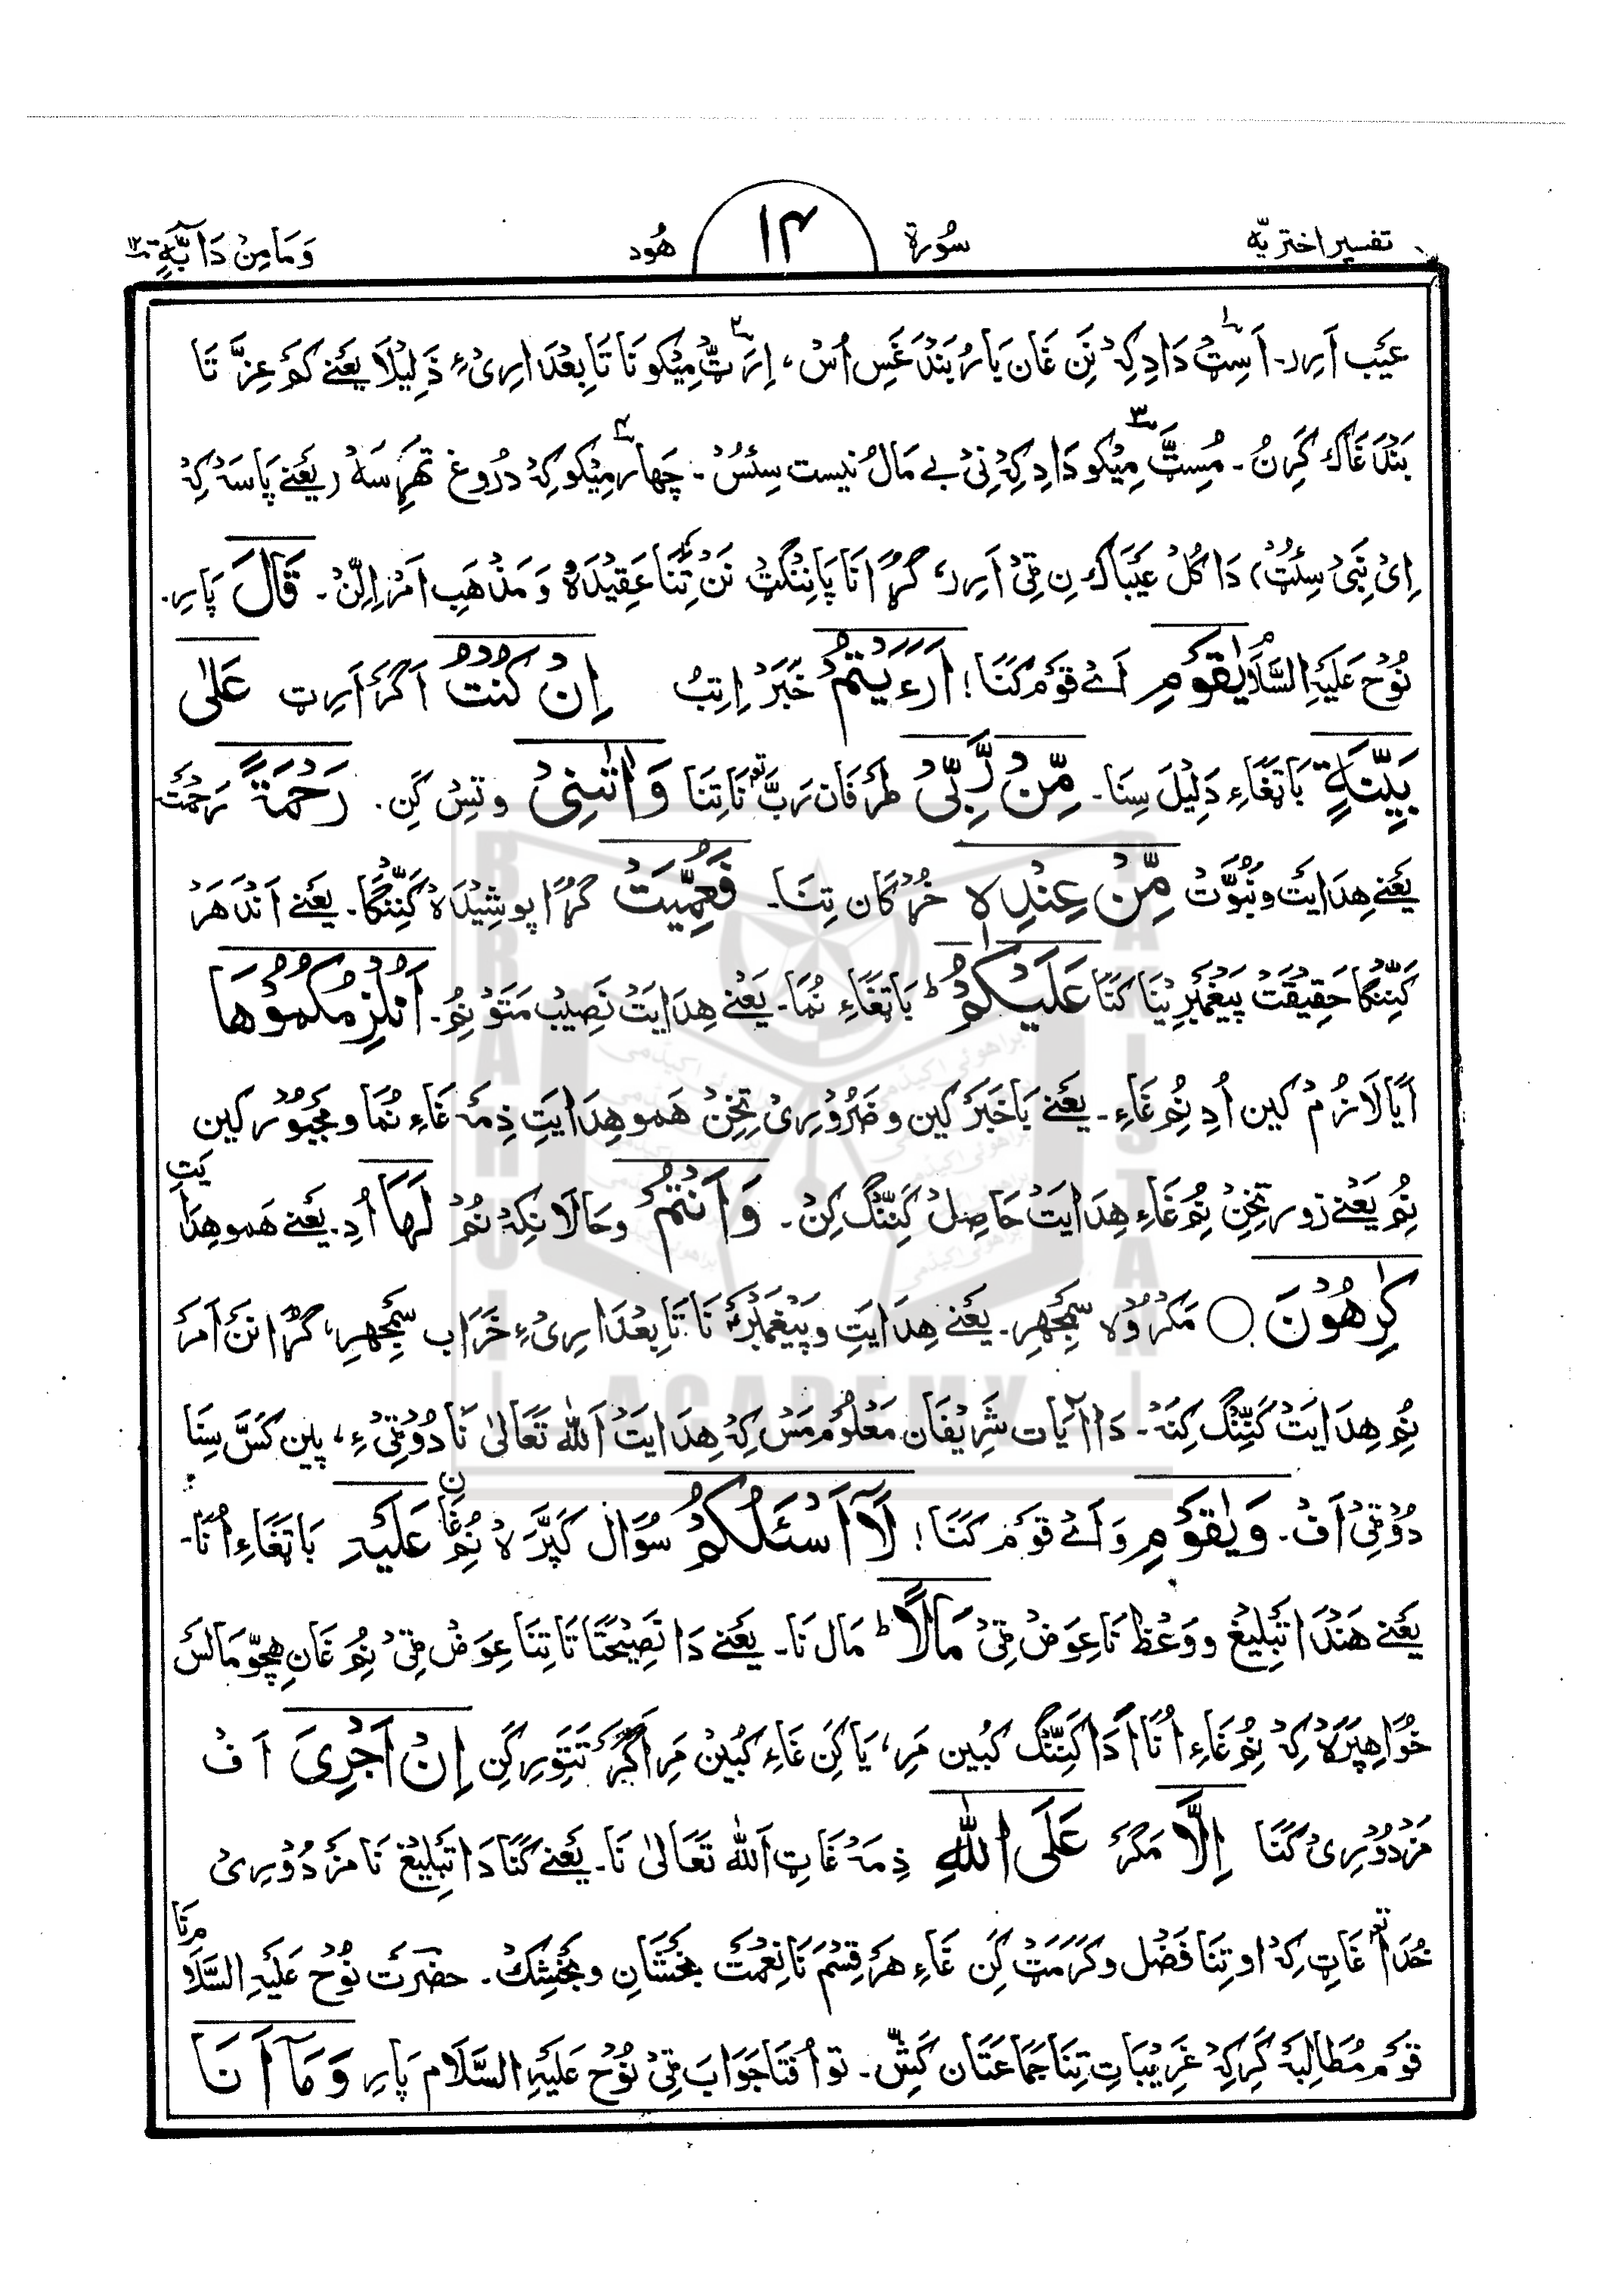 تفسیر اختریّه
سُورۃ
۱۴
هُود
وَمَامِنْ دَآبَّةٍ ۱۲
عَیب اَرِر۔ اَسِٹ دَادِ کِہْ نَن غَان بَارُ بَنْدَغَس اُسْ، اِرَٹّ مِیْکو نَا تَابِعْدَارِیْ ءِ ذَلِیْلَا یَعْنے کَم عِزَّ تَا
بَنْدَغَاک کَرِنُ۔ مُسِٹّ مِیْکو دَادِ کِہْ نِیْ بے مَالُ نیست سِئسُ۔ چَھار مِیْکو کِہْ دُروغ تھَرِسَہْ (یَعْنے پَاسَہْ کِہْ
اِیْ نَبِیْ سِئٹُ) دَا کُلْ عَیْبَاک نِ ٹِیْ اَرِر، گُڑا نَا پَانِنْگَٹْ نَنْ تِنَا عَقِیْدَہْ وَ مَذْهَبِ اَمْر اِلِّنْ۔ قَالَ پَارِ۔
نُوْح عَلَیْہِ السَّلَا یٰقَوْمِ اَئے قَوْم کَنَا! اَرَءَیْتُمْ خَبَرْ اِتِبُ اِنْ كُنْتُ اَگَرْ اَرِٹ عَلٰى
بَيِّنَةٍ بَاتِغَاءِ دَلِیْل سِنَا۔ مِّنْ رَّبِّيْ طَرْفَان رَبَّ نَا تِنَا وَاٰتٰىنِيْ وتِسْ کَنِ۔ رَحْمَةً رَحْمَتْ
یَعْنے هِدَایَتْ و نُبُوَّتْ مِّنْ عِنْدِهٖ خُڑْکَان تِنَا۔ فَعُمِّيَتْ گُڑا پوشِیْدَہْ کَنِّنْگَا۔ یَعْنے اَنْدَهَرْ
کَنِّنْگَا حَقِیْقَتْ پَیْغَمْبَرِیْنَا کَنَا عَلَيْكُمْ ؕ بَاتِغَاءِ نُمَا۔ یَعْنے هِدَایَتْ نَصِیْبْ مَتَوْ نُمْ۔ اَنُلْزِمُكُمُوْهَا
اَیَا لَازُمْ کین اُدِ نُمْ غَاءِ۔ یَعْنے بَاخَبَرْ کین و ضَرُوْرِیْ تِخِنْ هَمو هِدَایَتِ ذِمَہ غَاءِ نُمَا و مَجْبُوْر کین
نُمْ یَعْنے زور تِخِنْ نُمْ غَاءِ هِدَایَتْ حَاصِلْ کَنِّنْگ کِنْ۔ وَاَنْتُمْ وحَالَانِکِہْ نُمْ لَهَا اُدِ۔ یَعْنے هَمو هِدَا یَتِ
كٰرِهُوْنَ ○ مَکْرُوْہ سَمْجھِرِ۔ یَعْنے هِدَایَتِ و پَیْغَمْبَرْ نَا تَابِعْدَارِیْ ءِ خَرَاب سَمْجھِرِ، گُڑا نَنْ اَمَرْ
نُمْ هِدَایَتْ کَنِّنْگ کِنَہْ۔ دَا آیَات شَرِیْفَان مَعْلُوْم مَسْ کِہْ هِدَایَتْ اَللّٰہ تَعَالٰی نَا دُوْٹِیْ ءِ، پین کَسَّ سِنَا
دُوْٹِیْ اَفْ۔ وَيٰقَوْمِ وَ اَئے قَوْم کَنَا! لَآ اَسْـَٔلُكُمْ سُوَال کَپَّرَہْ نُمْ غَانْ عَلَيْهِ بَاتِغَاءِ اُنَا۔
یَعْنے هَنْدَا تَبْلِیْغ و وَعْظ نَا عِوَضْ ٹِیْ مَالًا ؕ مَال نَا۔ یَعْنے دَا نَصِیْحَتَا تَا تِنَا عِوَضْ ٹِیْ نُمْ غَانِ هِچّو مَالَس
خُوَاهِپَرَہْ کِہْ نُمْ غَاءِ اُنَا اَدَا کَنِّنْگ کُبِین مَرِ، یَا کَنَ غَاءِ کُبِین مَر اَگَرْ تَتَوْرِ کَنِ اِنْ اَجْرِيَ اَفْ
مَزْدُوْرِیْ کَنَا اِلَّا مَگَرْ عَلَى اللّٰهِ ذِمَہ غَاتِ اَللّٰہ تَعَالٰی نَا۔ یَعْنے کَنَا دَا تَبْلِیْغ نَا مَزْدُوْرِیْ
خُدَا غَاتِ کِہْ او تِنَا فَضْل و کَرَمَٹْ کَنِ غَاءِ هَر قِسْمَ نَا نِعْمَتْ بَخْشَانِ و بَخْشِکْ۔ حضرتْ نُوْح عَلَیْہِ السَّلَا مرنَا
قَوْم مُطَالِبَہ کَرِ کِہْ غَرِیْبَاتِ تِنَا جَمَاعَتَان کَشّ۔ تو اُفتَا جَوَاب ٹِیْ نُوْح عَلَیْہِ السَّلَام پَارِ وَمَآ اَنَا
BRAHUI ACADEMY PAKISTAN